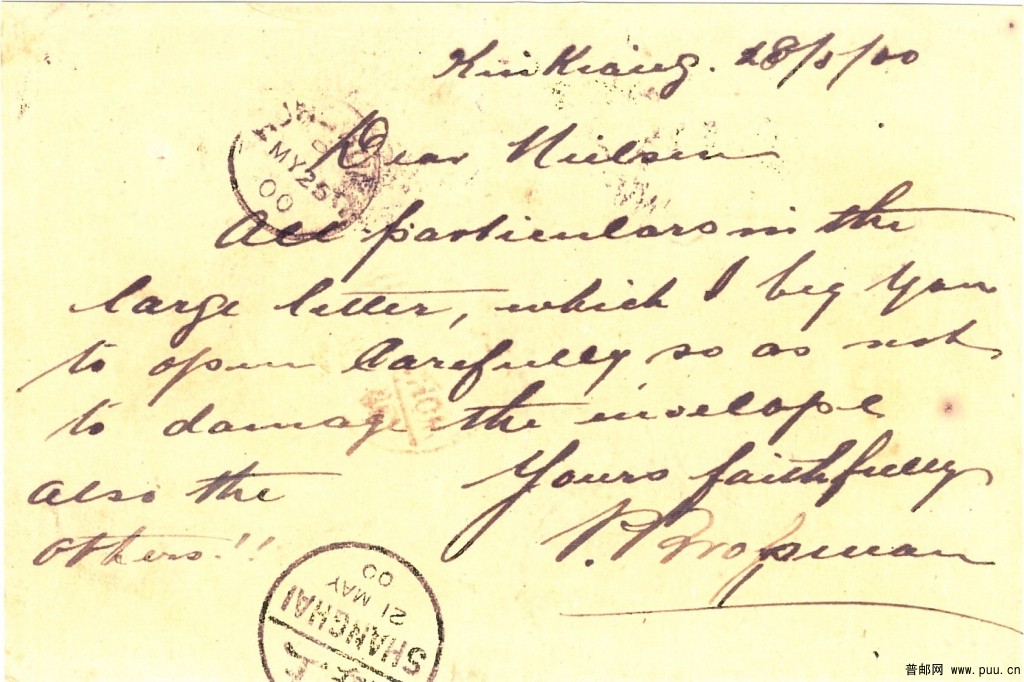 KinKiang. 18/5/00
Dear Nielsen
All particulars in the
large letter, which I beg you
to open Carefully so as not
to damage the invelope
Yours faithfully
also the
others!!
MY 25
00
SHANGHAI
21 MAY
00
普邮网 www.puu.cn